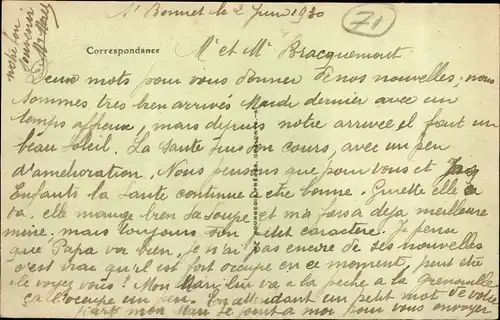 St Bonnet le 2 Juin 1930
71
notre bon
souvenir
Correspondance
Mr et Me Bracquemont
Deux mots pour vous donner de nos nouvelles, nous
sommes tres bien arrivés Mardi dernier avec un
temps affreux, mais depuis notre arrivée il fait un
beau soleil. La santé suis son cours, avec un peu
d'amelioration. Nous pensons que pour vous et
Enfants la santé continue a etre bonne. Ginette elle
va. elle mange bien sa soupe et m'a faisa deja meilleure
mine, mais toujours son petit caractère. Je pense
que Papa va bien, je n'ai pas encore de ses nouvelles
c'est vrai qu'il est fort occupé en ce moment, peut etre
le voyez vous? Mon Mari lui va a la peche a la Grenouille
ca l'occupe un peu. En attendant un petit mot de votre
part, mon Mari se joint a moi pour vous envoyer